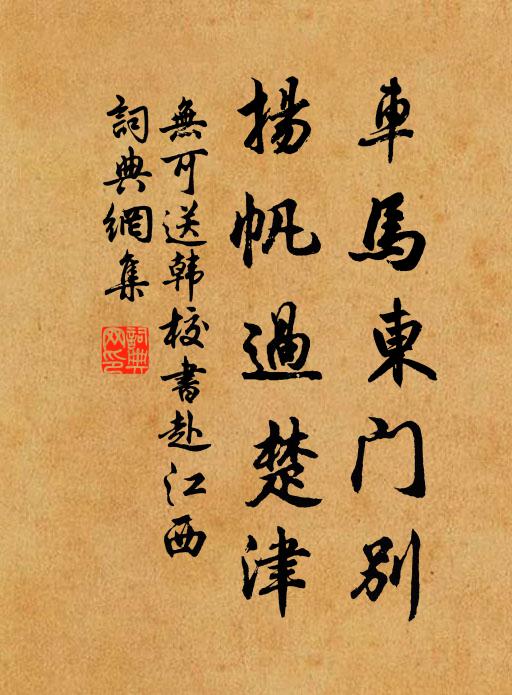 車馬東门別
揚帆過楚津
無可送韩校書赴江西
詞典網集
詞典
网印